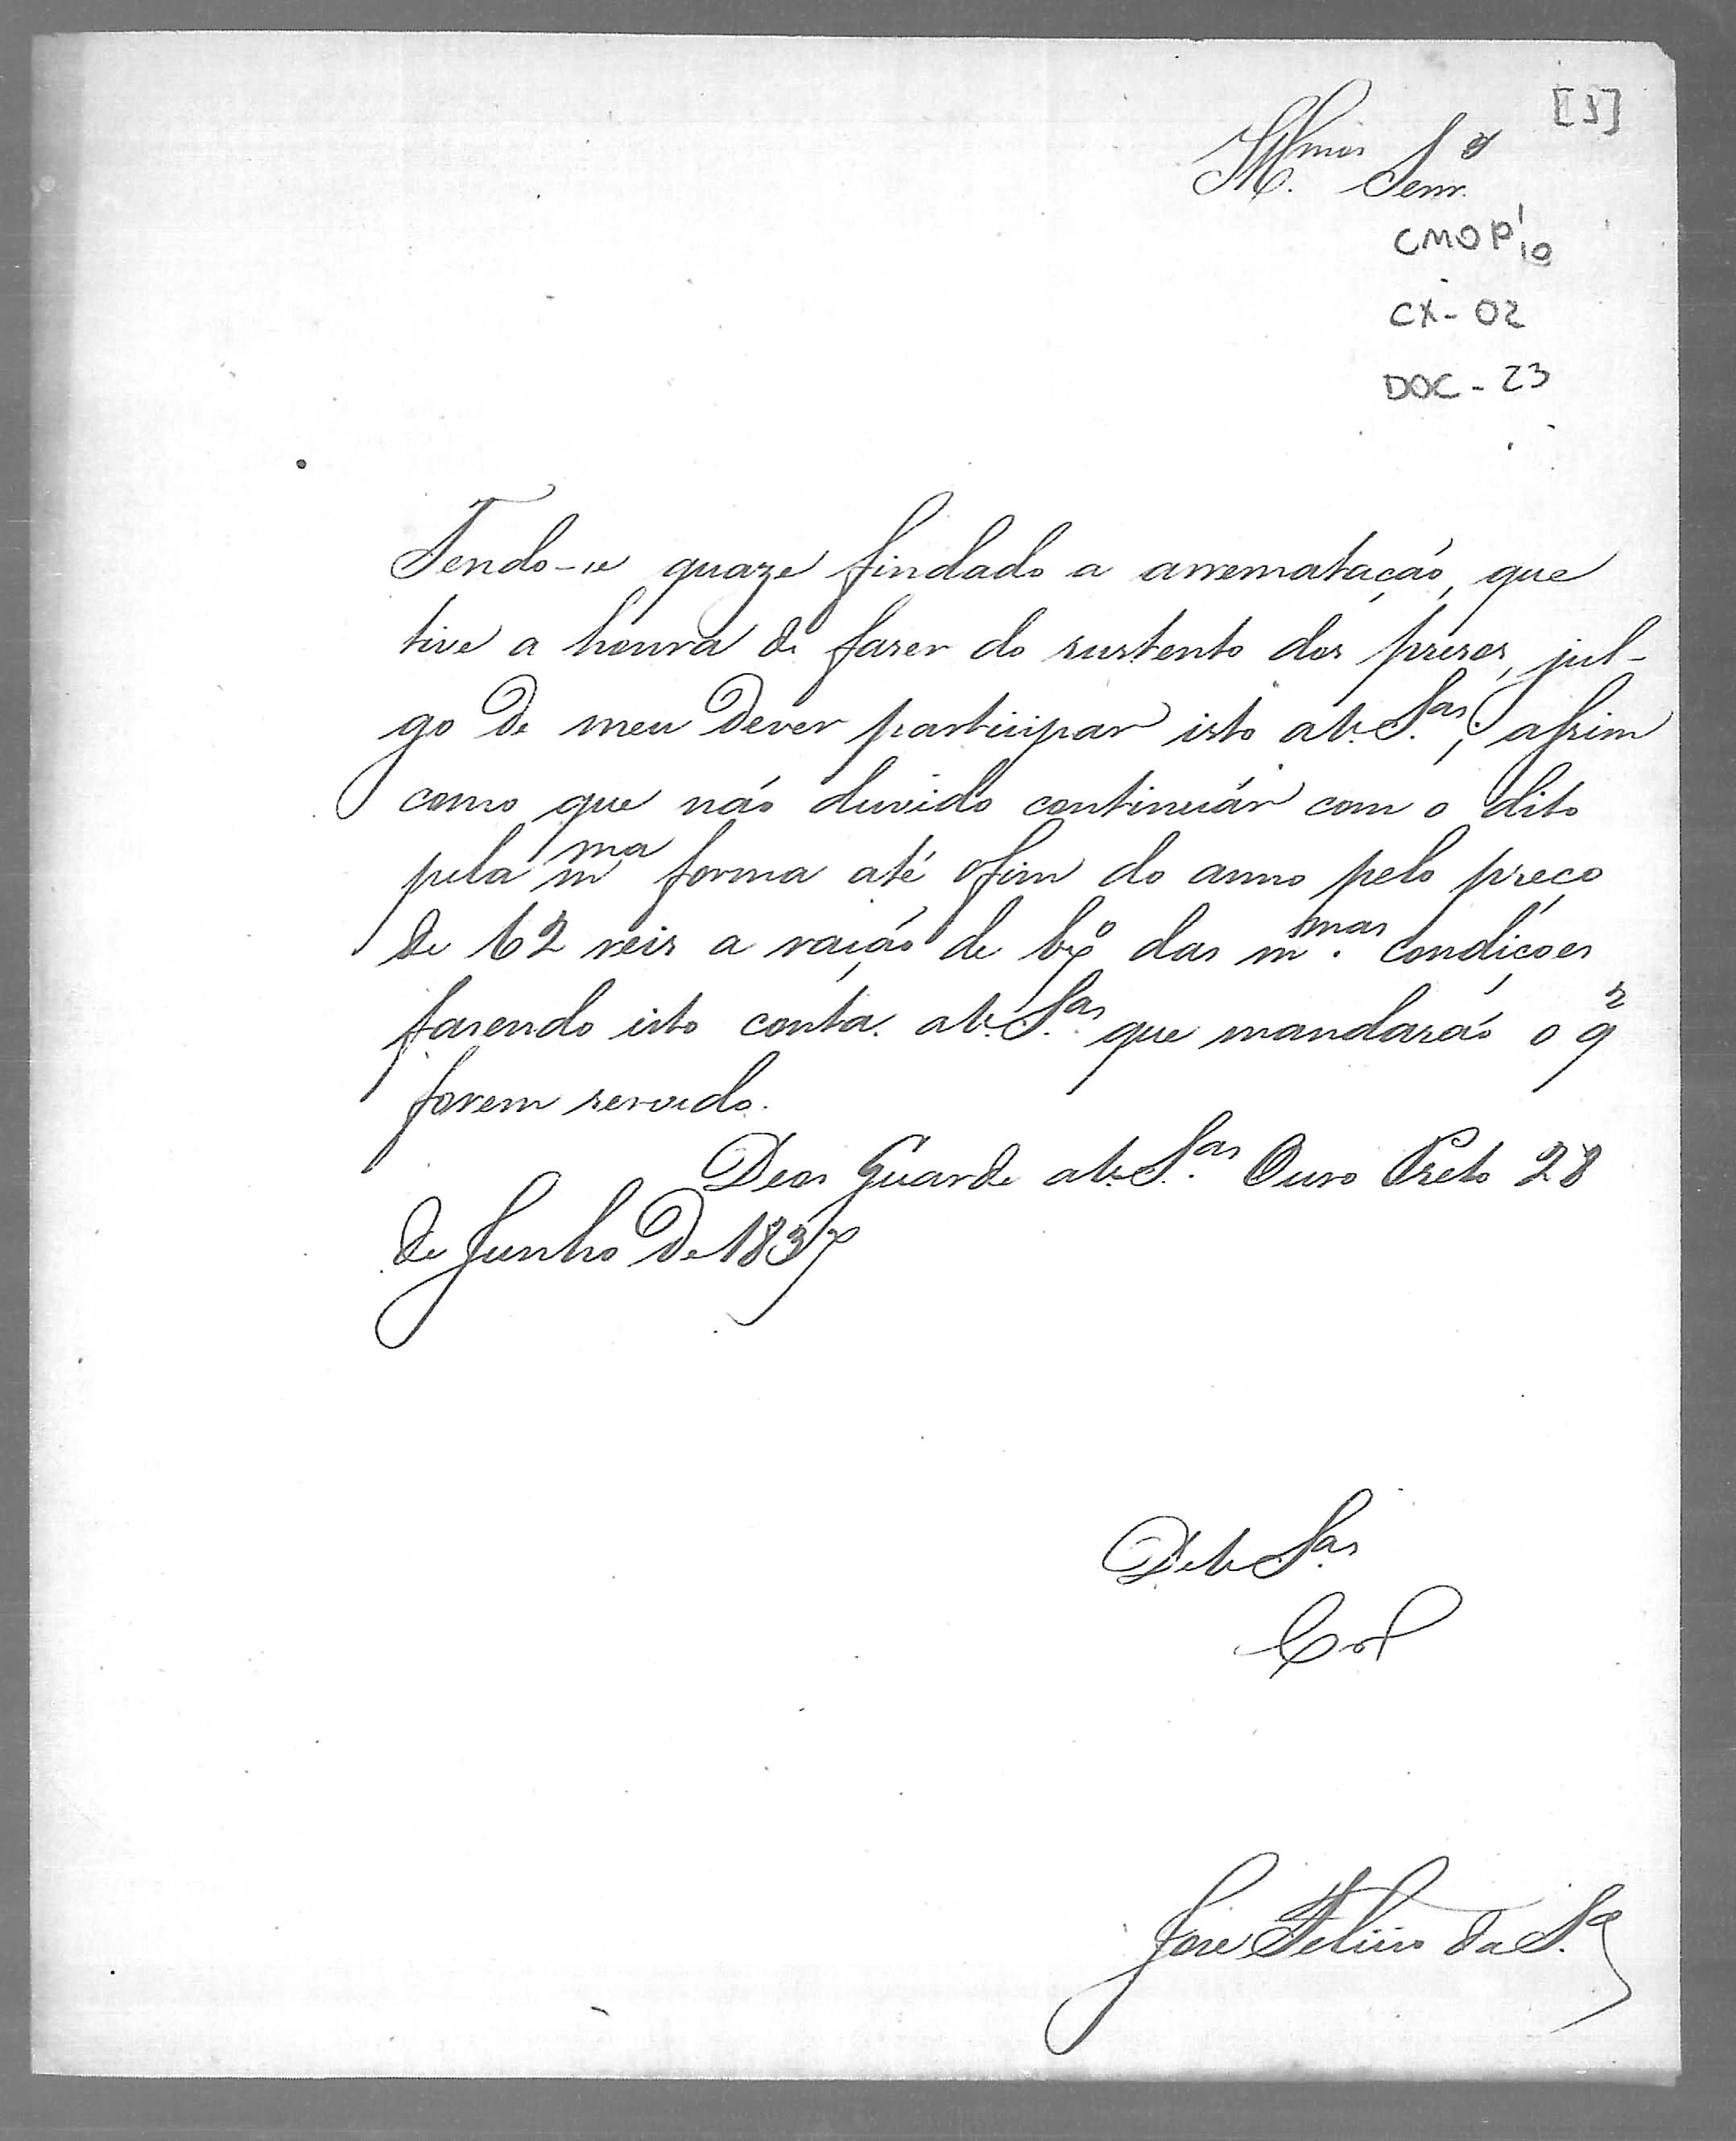 [1]
Ill.mos Senr.es
CMOP 10
CX - 02
DOC - 23
Tendo-se quaze findado a arremataçáo, que
tive a honra de faser do sustento dos presos, jul-
go de meu Dever participar isto aV. S.as; assim
como que náo duvido continuár com o dito
pela m.ma forma até ofim do anno pelo preço
de 62 reis a raçáo de bxº das m.mas condiçoes
fasendo isto conta aV. S.as que mandaráo o q
forem servido.
Deos Guarde aV. S.as Ouro Preto 28
de Junho de 1837
DeV S.as
José Feliciо da S.a